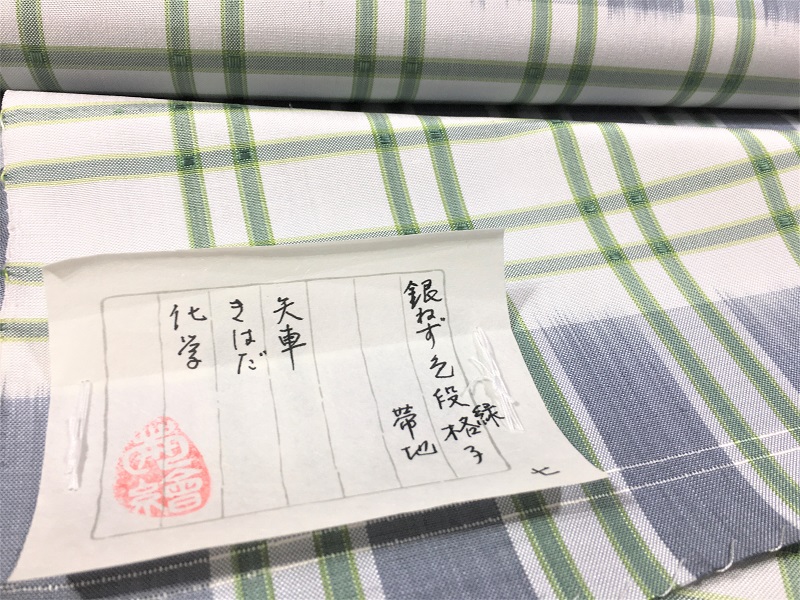 銀ねず色段格子
緑
帯地
矢車
きはだ
化学
七